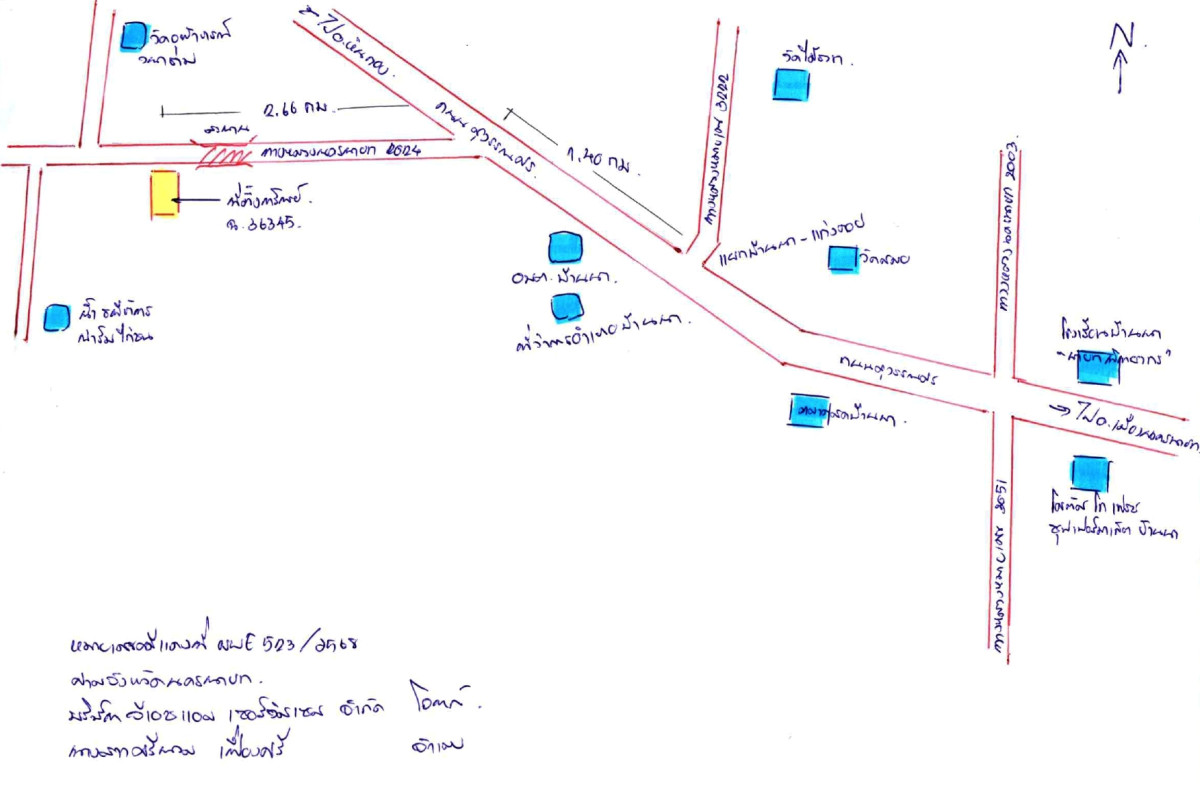 วัดอุฬาภรณ์
วนาราม
→ ไป อ.หินกอง.
N
วัดไผ่ขวาง.
2.66 กม.
สะพาน
ทางหลวงนครนายก 2024
ถนนสุวรรณศร.
1.40 กม.
ทางหลวงหมายเลข 3222
ทางหลวงชนบท นย. 3003
ที่ตั้งทรัพย์.
ฉ. 36345.
แยกบ้านนา - แก่งคอย
อบต. บ้านนา.
ที่ว่าการอำเภอบ้านนา.
ฟาร์มไก่ชน
ถนนสุวรรณศร
โรงเรียนบ้านนา
"นายกพิทยากร"
→ ไป อ.เมืองนครนายก.
ตลาดสดบ้านนา.
โลตัส โก เฟรช
ซุปเปอร์มาเก็ต บ้านนา
หมายเลขคดีแดงที่ ผบE 523/2568
ศาลจังหวัดนครนายก.
บริษัท จีเอชแอม เซอร์วิสเซส จำกัด โจทก์.
จำเลย